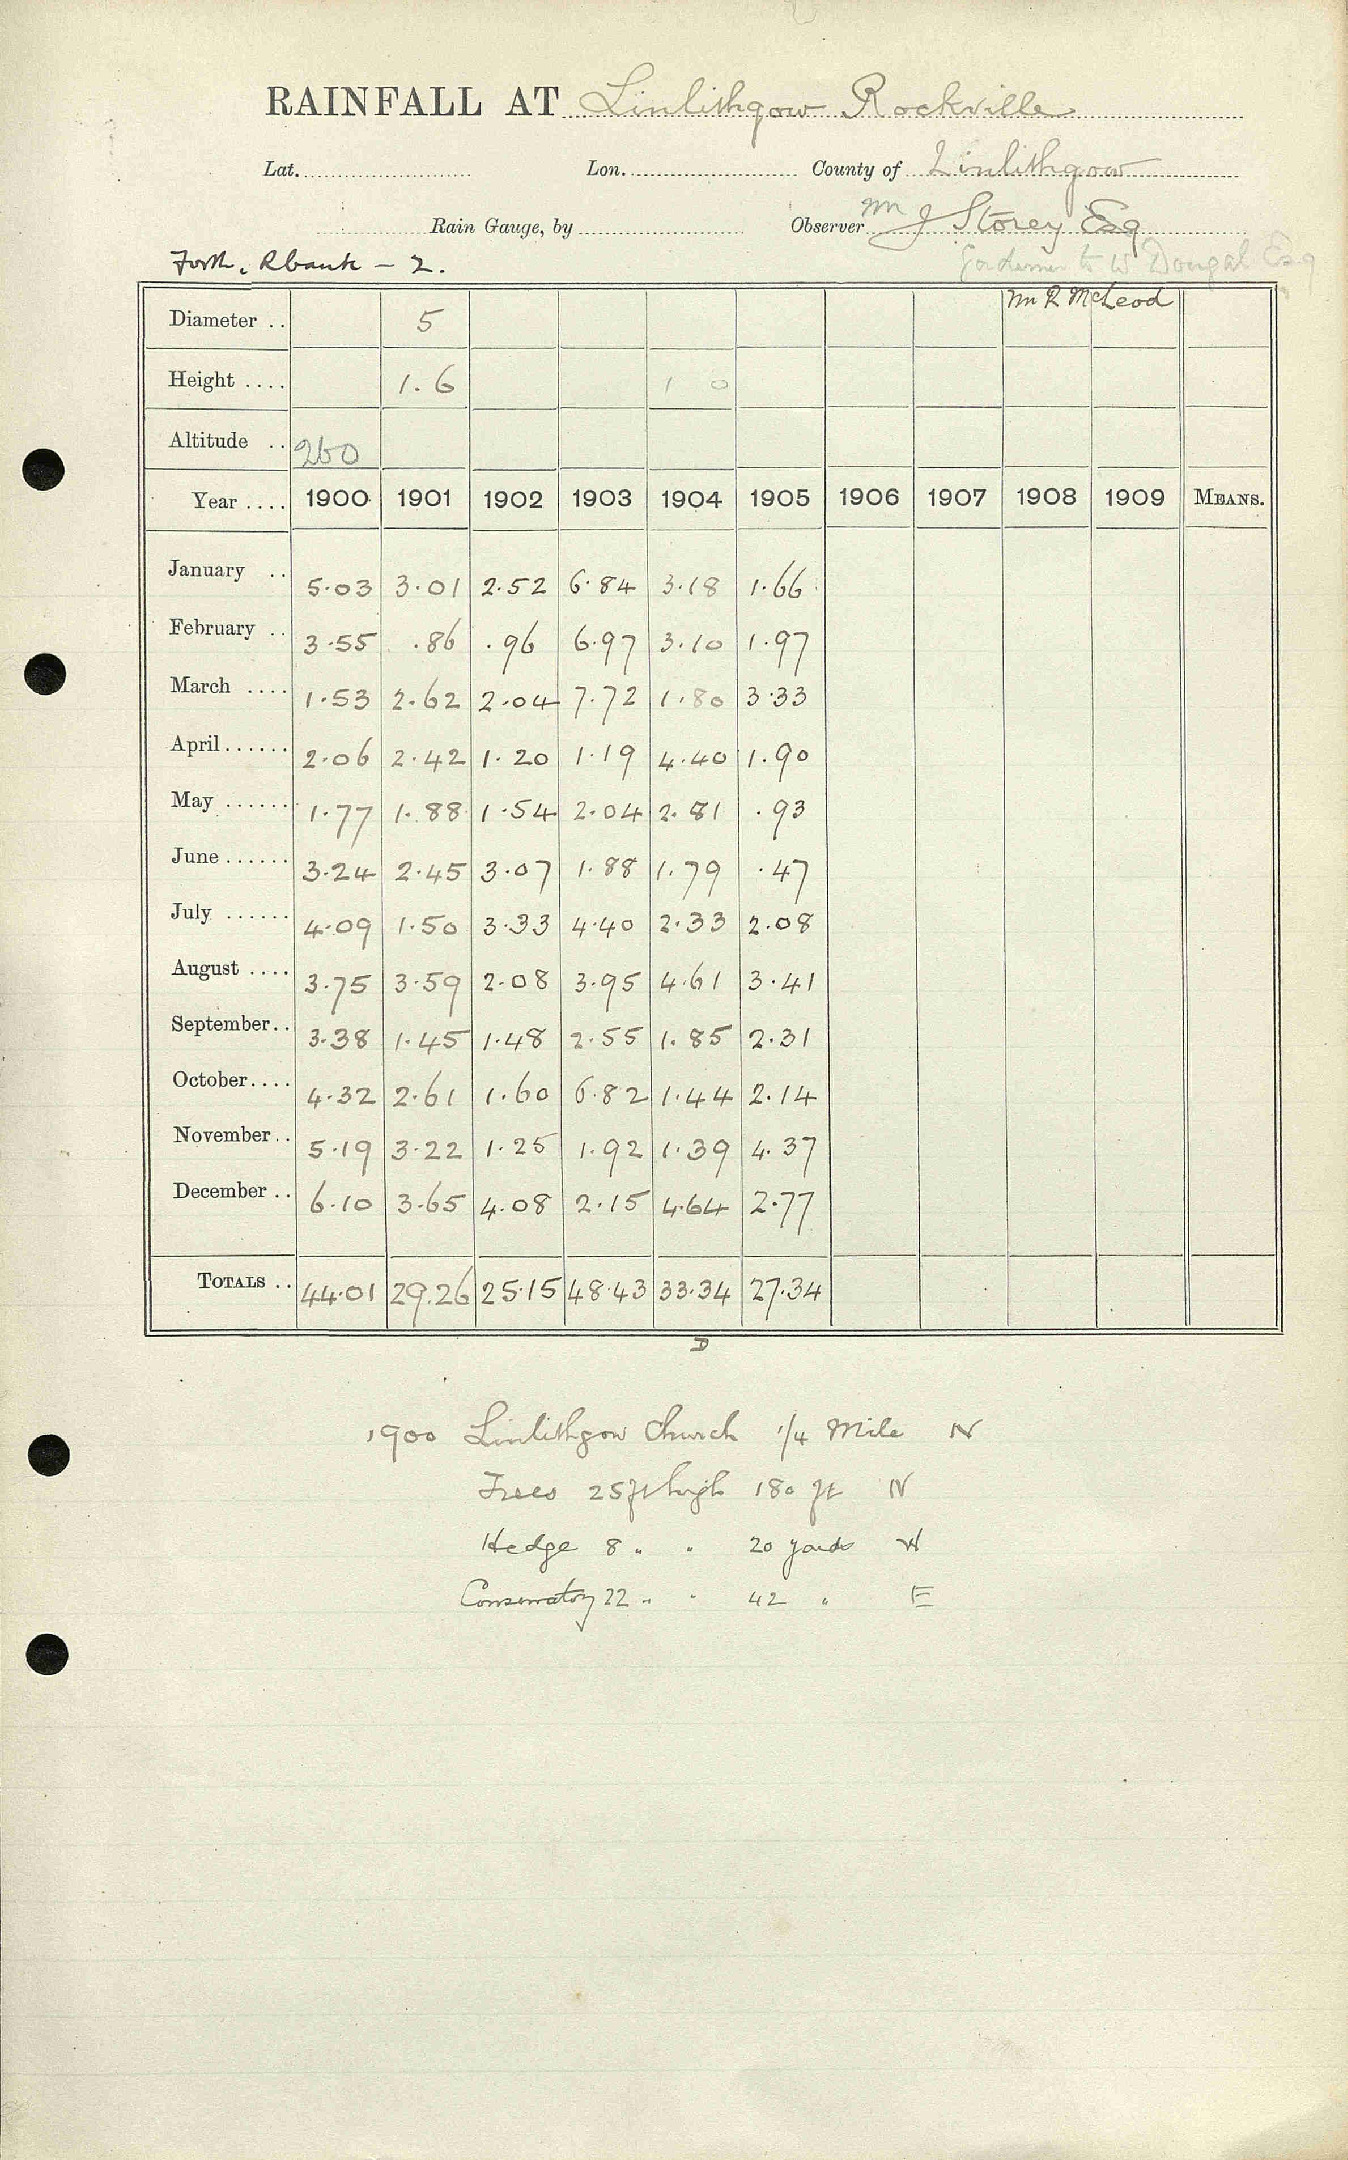 RAINFALL AT Linlithgow Rockville
Lat. Lon. County of Linlithgow
Rain Gauge, by Observer Mr J Storey Esq
Forth, Rbank - 2. Gardener to W Dougal Esq
Mr R McLeod
Diameter .. 5
Height .... 1.6 1 0
Altitude .. 260
Year .... 1900 1901 1902 1903 1904 1905 1906 1907 1908 1909 MEANS.
January .. 5.03 3.01 2.52 6.84 3.18 1.66
February .. 3.55 .86 .96 6.97 3.10 1.97
March .... 1.53 2.62 2.04 7.72 1.80 3.33
April...... 2.06 2.42 1.20 1.19 4.40 1.90
May ...... 1.77 1.88 1.54 2.04 2.81 .93
June...... 3.24 2.45 3.07 1.88 1.79 .47
July ...... 4.09 1.50 3.33 4.40 2.33 2.08
August .... 3.75 3.59 2.08 3.95 4.61 3.41
September.. 3.38 1.45 1.48 2.55 1.85 2.31
October.... 4.32 2.61 1.60 6.82 1.44 2.14
November.. 5.19 3.22 1.25 1.92 1.39 4.37
December .. 6.10 3.65 4.08 2.15 4.64 2.77
TOTALS .. 44.01 29.26 25.15 48.43 33.34 27.34
D
1900 Linlithgow Church 1/4 Mile N
Trees 25 ft high 180 ft N
Hedge 8 " " 20 yards W
Conservatory 22 " " 42 " E